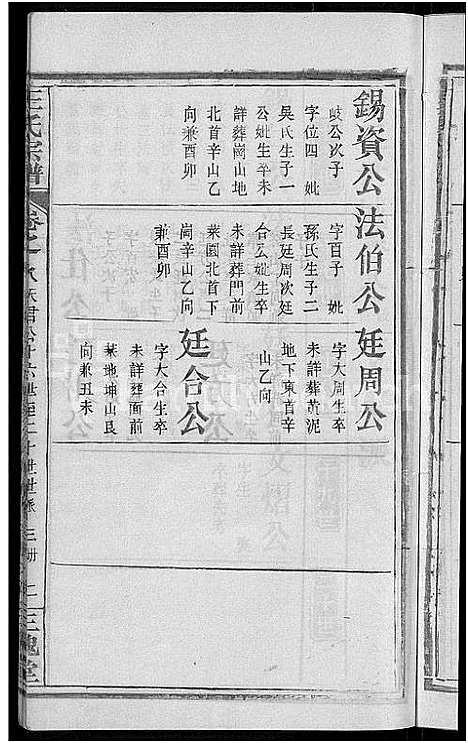 錫資公
岐公次子
字位四 妣
吳氏生子一
公妣生卒未
詳葬崗山地
北首辛山乙
向兼酉卯
法伯公
字百子 妣
孫氏生子二
長廷周次廷
合公妣生卒
未詳葬門前
菜園北首下
崗辛山乙向
兼酉卯
廷周公
字大周生卒
未詳葬黄泥
地下東首辛
山乙向
廷合公
字大合生卒
未詳葬面前
菜地坤山艮
向兼丑未
王氏宗譜
卷之
君公十六世至二十世世派
三册
二
三槐堂